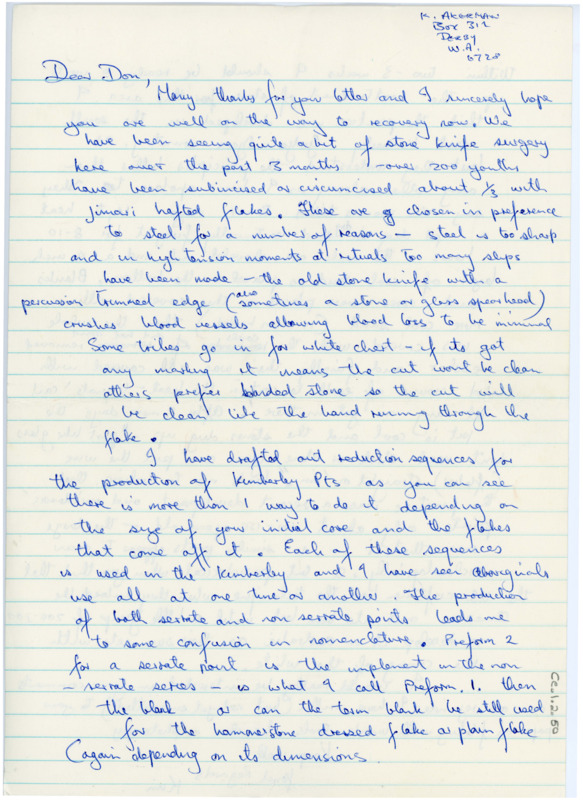 K. AKERMAN
Box 312
DERBY
W.A.
6728
Dear Don,
Many thanks for your letter and I sincerely hope
you are well on the way to recovery now. We
have been seeing quite a bit of stone knife surgery
here over the past 3 months - over 200 youths
have been subincised or circumcised about 1/3 with
jimari hafted flakes. These are chosen in preference
to steel for a number of reasons — steel is too sharp
and in high tension moments at rituals too many slips
have been made - the old stone knife with a
percussion trimmed edge (also sometimes a stone or glass spearhead)
crushes blood vessels allowing blood loss to be minimal
Some tribes go in for white chert - if its got
any marking it means the cut wont be clean
others prefer banded stone so the cut will
be clean like the band running through the
flake.
I have drafted out reduction sequences for
the production of Kimberley Pts as you can see
there is more than 1 way to do it depending on
the size of your initial core and the flakes
that come off it. Each of these sequences
is used in the Kimberley and I have seen Aboriginals
use all at one time or another. The production
of both serrate and non serrate points leads me
to some confusion in nomenclature. Preform 2
for a serrate point is the implement in the non
- serrate series - is what I call Preform. 1. then
the blank or can the term blank be still used
for the hammerstone dressed flake or plain flake
(again depending on its dimensions.